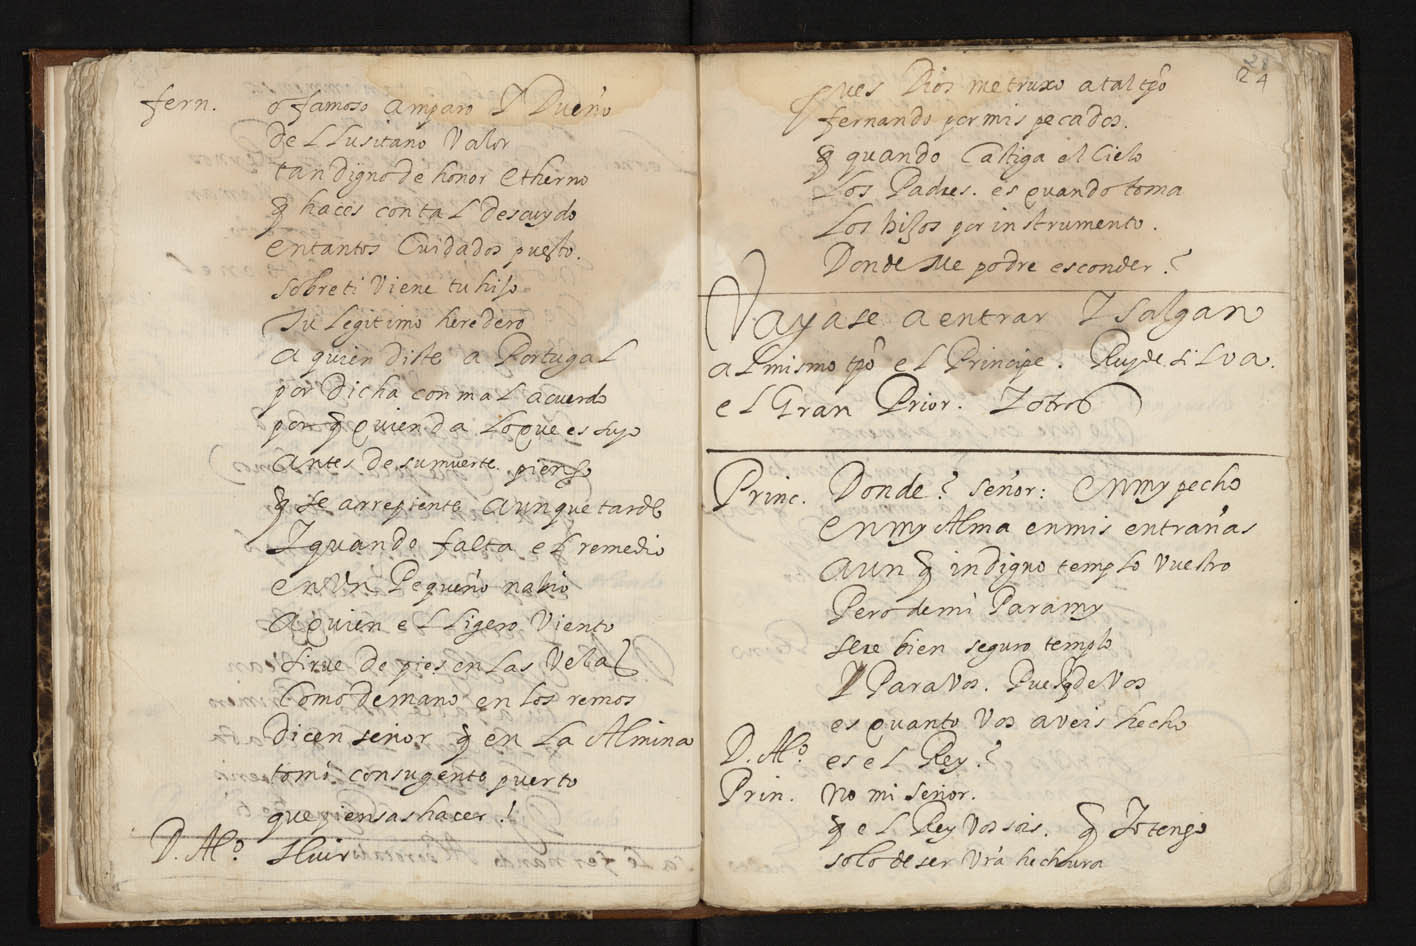 fern. o famoso amparo Y Dueño
del Lusitano Valor
tan digno de honor etherno
q haces con tal descuydo
en tantos Cuidados puesto.
sobre ti Viene tu hijo
Tu legitimo heredero
a quien diste a Portugal
por dicha con mal acuerdo
por q quien da lo que es suyo
antes de su muerte. pienso
q se arrepiente aunque tarde
Y quando falta el remedio
en Un Pequeño nabio
a quien el ligero Viento
sirue de pies en las Velas
Como de mano en los remos
Dicen señor q en la Almina
tomó con su gente puerto
que piensas hacer?
D. Alº. Huir
24
Pues Dios me truxo a tal tpo
fernando por mis pecados.
q quando Castiga el Cielo
Los Padres. es quando toma
Los hijos por instrumento.
Donde Me podre esconder?
Vayase a entrar Y salgan
al mismo tpo el Principe. Ruy de silva.
el Gran Prior. Y otros
Princ. Donde? señor: en my pecho
en my Alma en mis entrañas
aun q indigno templo Vuestro
Pero de mi Para my
sere bien seguro templo
Y Para Vos. Pues q de Vos
es quanto Vos aveis hecho
D. Alº. es el Rey?
Prin. No mi señor.
q el Rey Vos sois. q Yo tengo
solo de ser Vra hechura